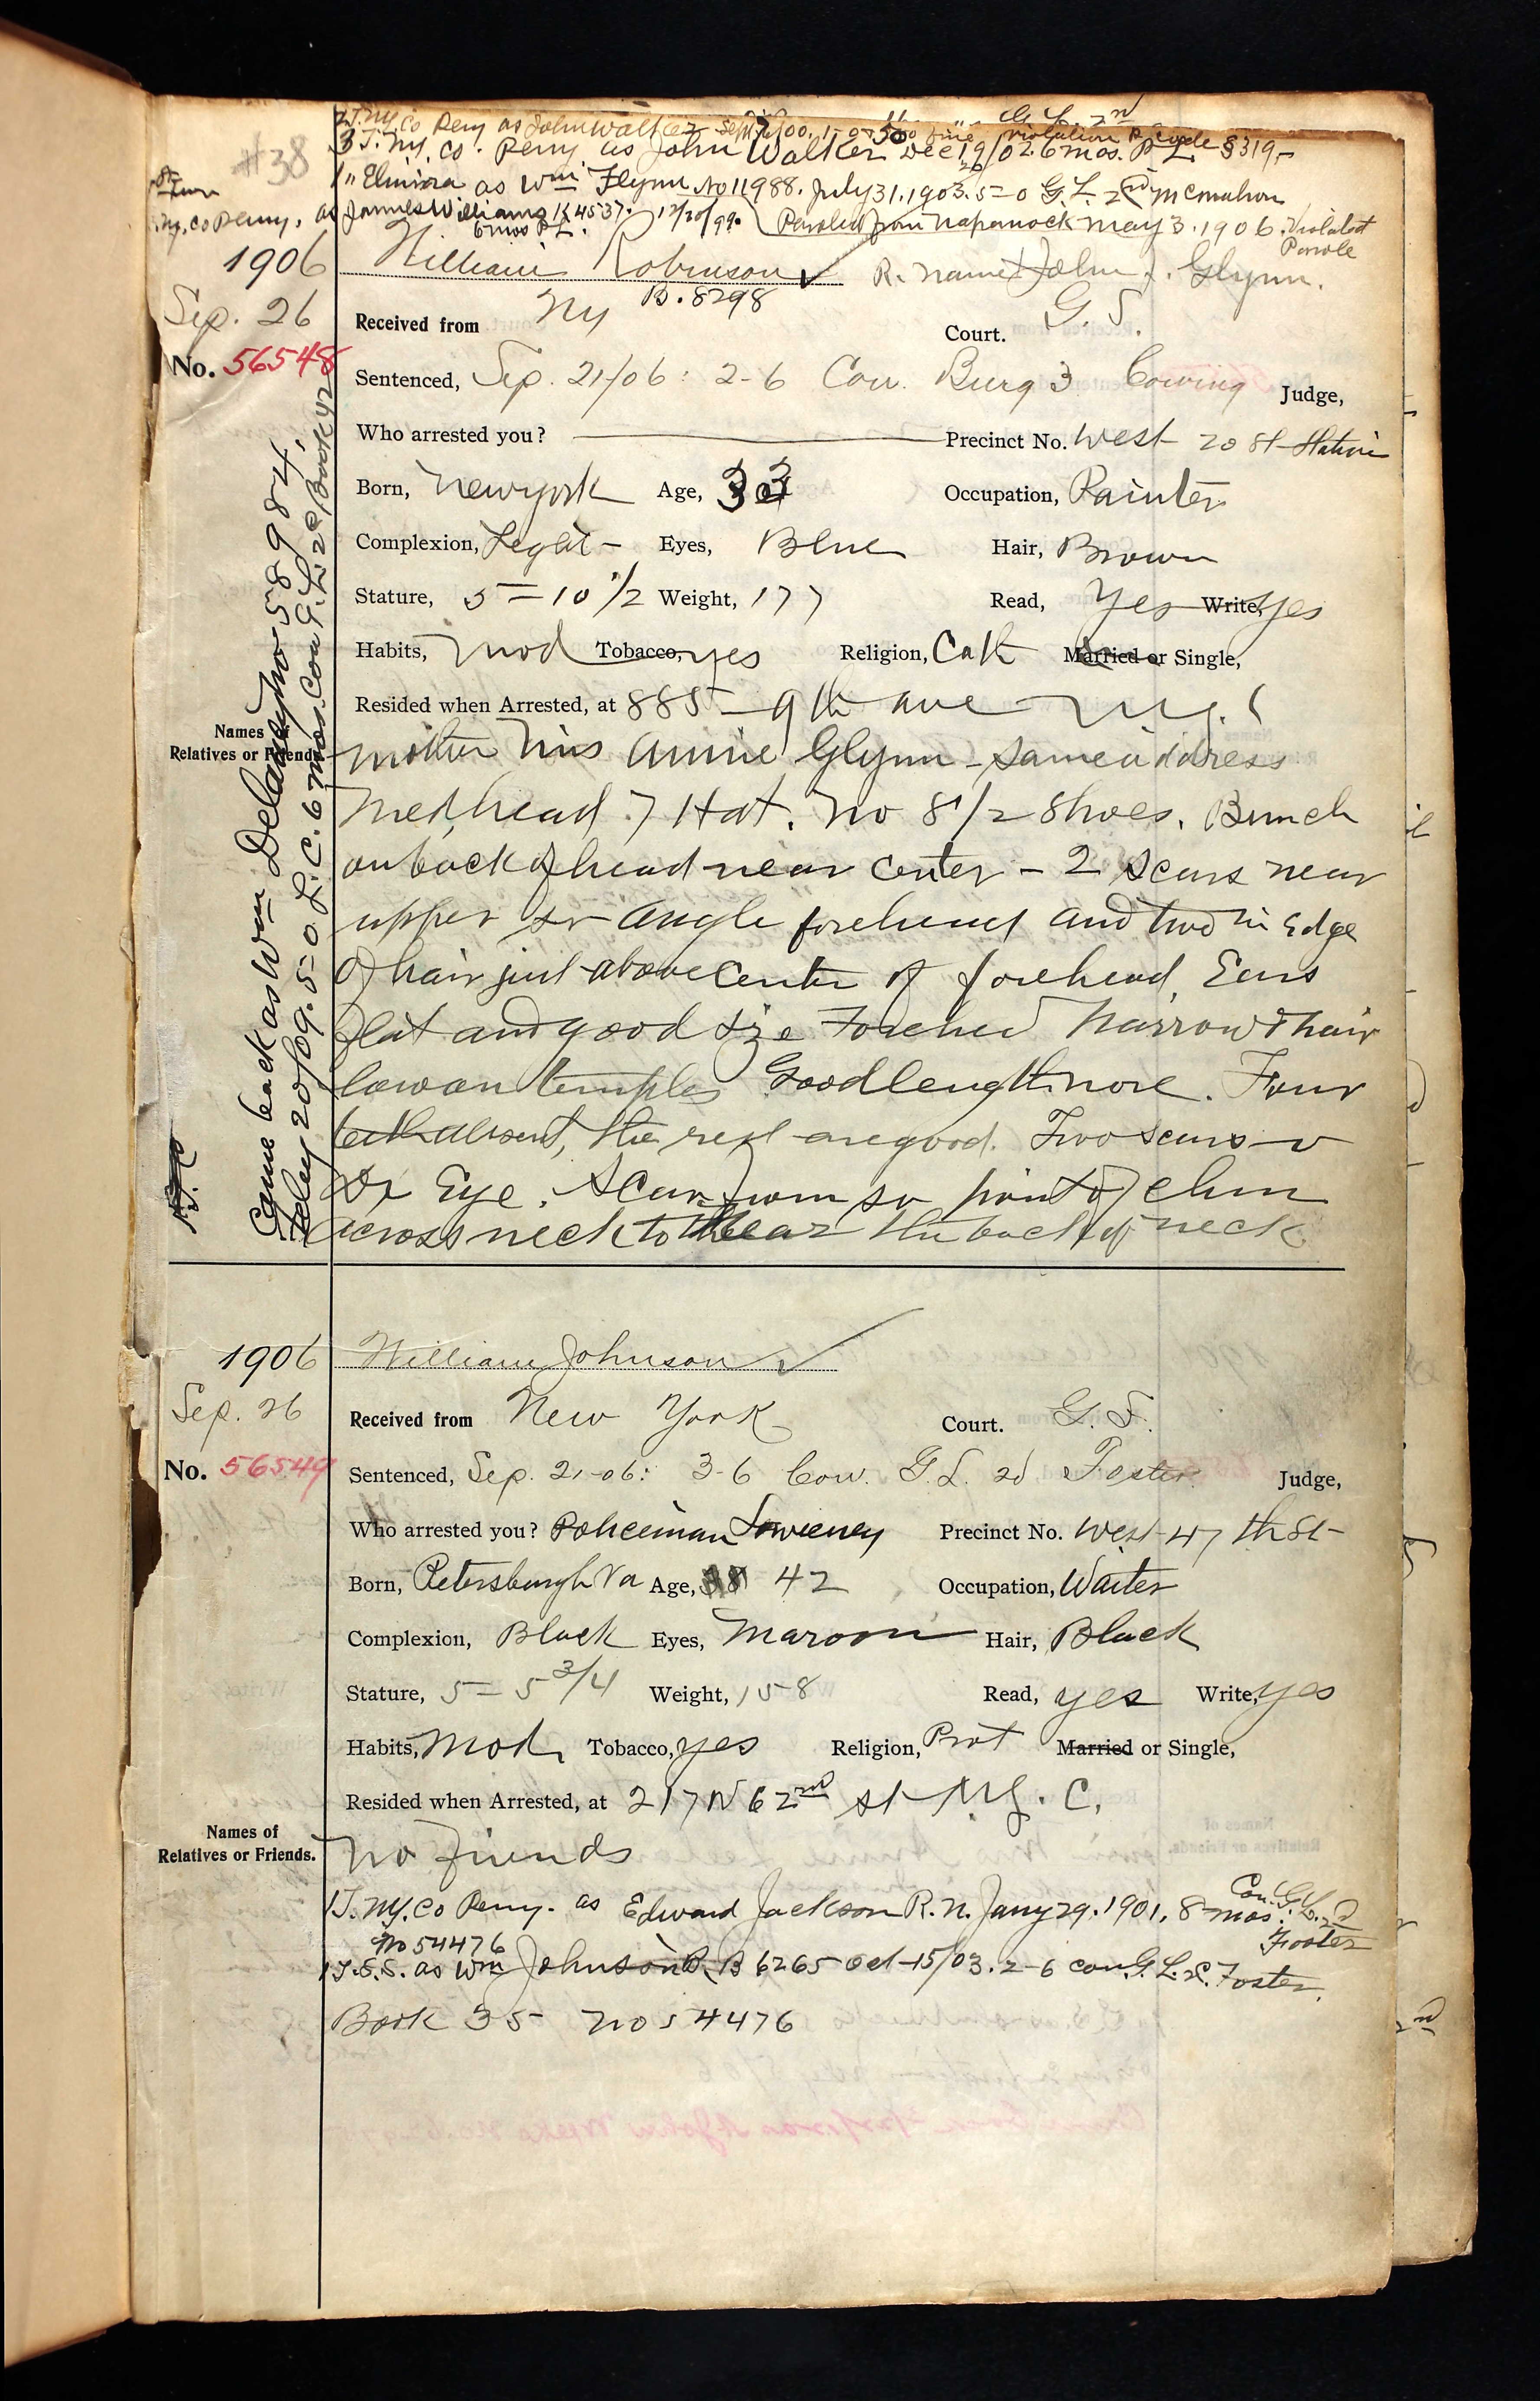 #38
2 T. NY. Co Peny as John Walker Sept 7/00. 1-0 + 500 fine violation P. Code §319-
3 T. NY. Co. Peny as John Walker Dec 19/02. 6 mos. P. L.
1 " Elmira as Wm Flynn No 11988. July 31. 1903. 5=0 G. L. 2d McMahon
NY. Co Peny. as James Williams K4537. 12/20/99. Paroled from Napanock May 3. 1906. Violated Parole
6 mos P L.
1906 William Robinson ✓ R. name John J. Glynn.
B. 8298
Sep. 26 Received from NY Court. G. S.
No. 56548
Sentenced, Sep. 21/06: 2-6 Con. Burg 3 Cowing Judge,
Who arrested you? Precinct No. West 20 St Station
Born, New york Age, Occupation, Painter
Complexion, Light - Eyes, Blue Hair, Brown
Stature, 5=10 1/2 Weight, 177 Read, Yes Write, yes
Habits, Mod Tobacco, yes Religion, Cath Married or Single,
Resided when Arrested, at 885 - 9th ave N.Y. C
Names of
Relatives or Friends.
mother Mrs Annie Glynn - Same address
Med, head. 7 Hat. No 8 1/2 Shoes. Bunch
on back of head near center - 2 scars near
upper sr angle forehead and two in Edge
of hair just above center of forehead, Ears
flat and good size Forehed narrow & hair
low on temples Good length nose. Four
teeth absent, the rest are good. Two scars
Eye. Scar from sr point of chin
across neck to the back of neck
Came back as Wm Delaney No 58984,
20/09. 5=0. L. C. 6 mos. Con G. L. 2d Book 42
1906 William Johnson ✓
Sep. 26 Received from New York Court. G. S.
No. 56549
Sentenced, Sep. 21-06: 3-6 Con. G. L. 2d Foster Judge,
Who arrested you? Policeman Sweeney Precinct No. West 47 th St-
Born, Petersburgh Va Age, 38 42 Occupation, Waiter
Complexion, Black Eyes, Maroon Hair, Black
Stature, 5=5 3/4 Weight, 158 Read, yes Write, yes
Habits, Mod, Tobacco, yes Religion, Prot Married or Single,
Resided when Arrested, at 217 W 62nd st N.Y. C.
Names of
Relatives or Friends.
No friends
1 T. NY. Co Peny. as Edward Jackson R. N. Jany 29. 1901, 8 mos. Con. G. L. 2d
Foster
No 54476
1 T. S. S. as Wm Johnson B. 6265 Oct-15/03. 2-6 con. G. L. 2d. Foster.
Book 35 No 54476